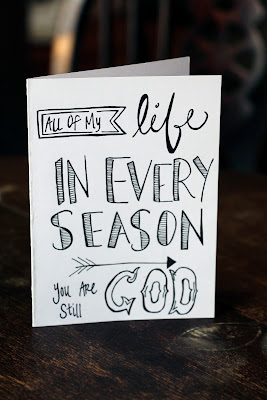 ALL OF MY life
IN EVERY
SEASON
You ARE GOD
Still